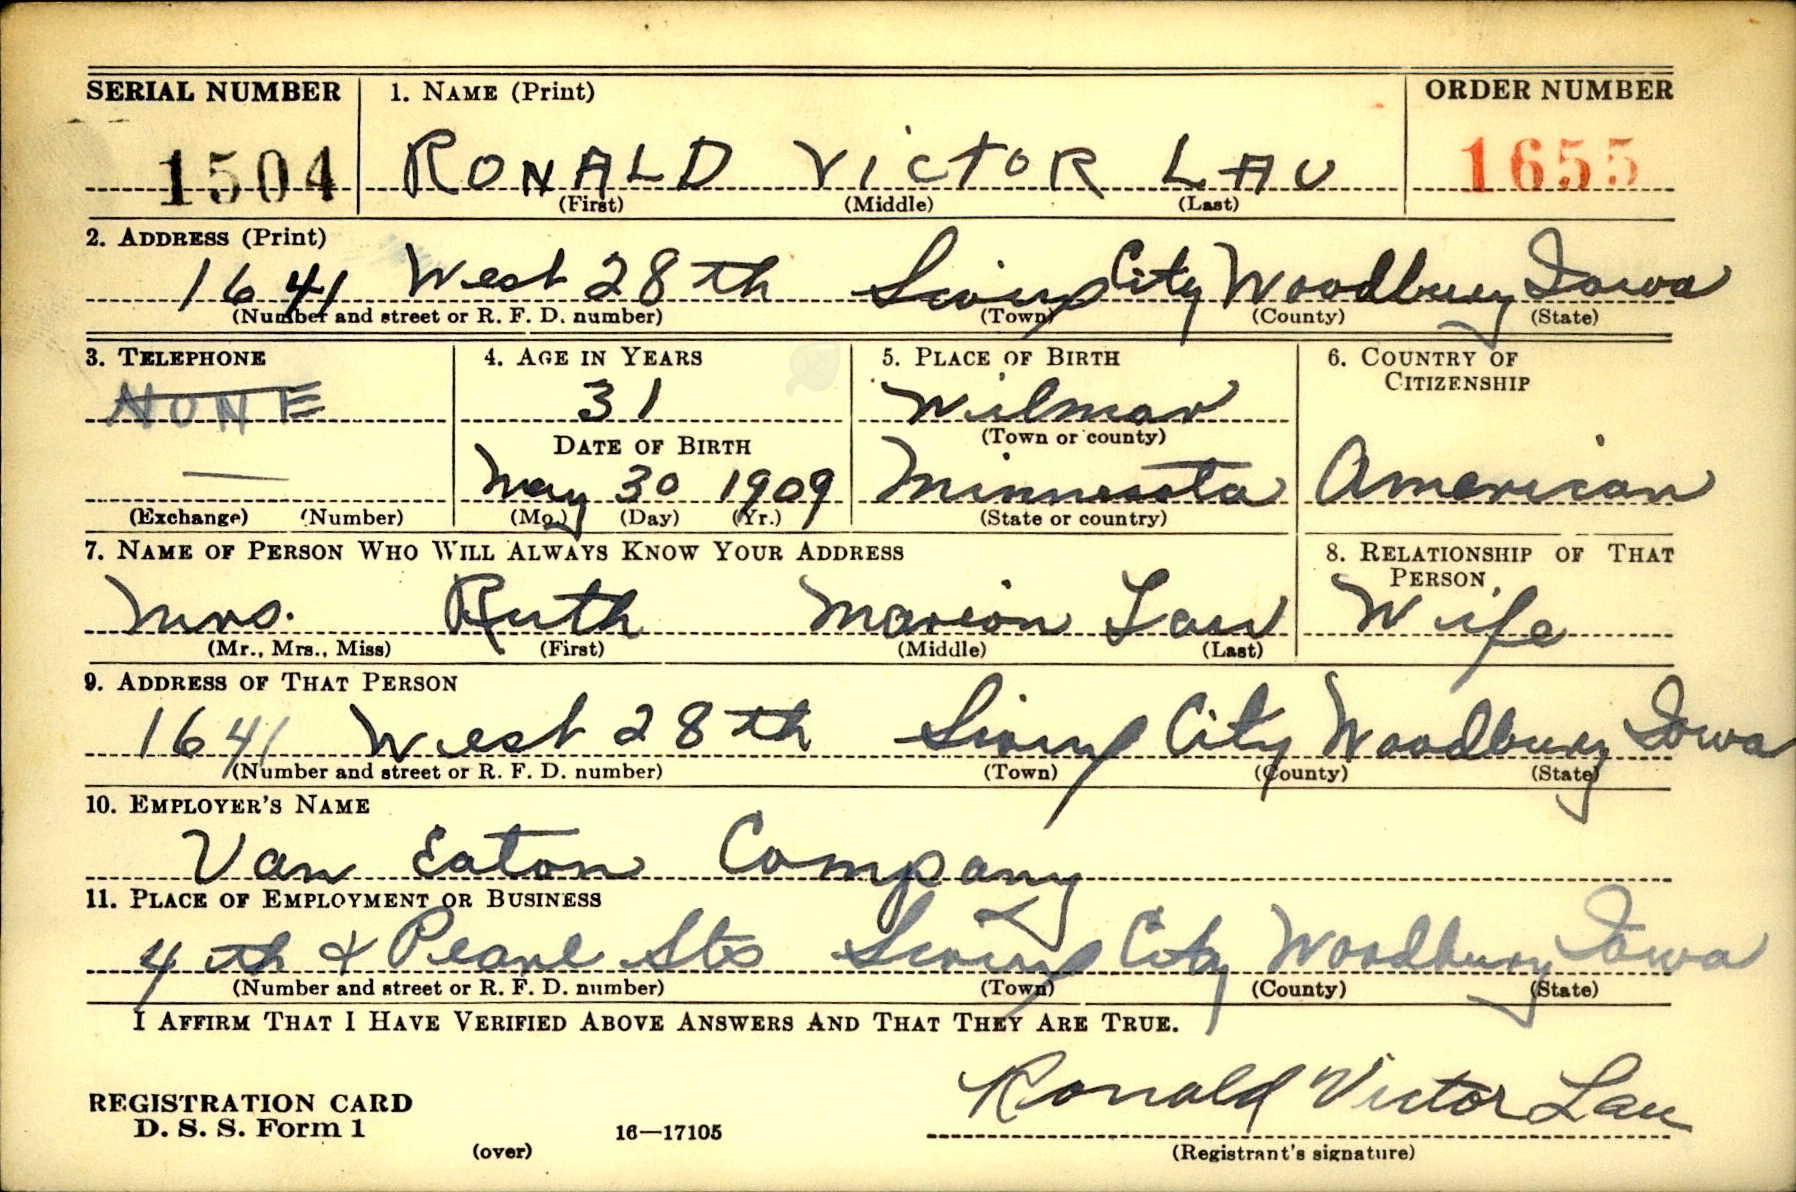 SERIAL NUMBER 1. NAME (Print) ORDER NUMBER
1504 RONALD VICTOR LAU 1655
(First) (Middle) (Last)
2. ADDRESS (Print)
1641 West 28th Sioux City Woodbury Iowa
(Number and street or R. F. D. number) (Town) (County) (State)
3. TELEPHONE 4. AGE IN YEARS 5. PLACE OF BIRTH 6. COUNTRY OF CITIZENSHIP
NONE 31 Wilmar
DATE OF BIRTH (Town or county)
— May 30 1909 Minnesota American
(Exchange) (Number) (Mo.) (Day) (Yr.) (State or country)
7. NAME OF PERSON WHO WILL ALWAYS KNOW YOUR ADDRESS 8. RELATIONSHIP OF THAT PERSON
Mrs. Ruth Marion Lau Wife
(Mr., Mrs., Miss) (First) (Middle) (Last)
9. ADDRESS OF THAT PERSON
1641 West 28th Sioux City Woodbury Iowa
(Number and street or R. F. D. number) (Town) (County) (State)
10. EMPLOYER'S NAME
Van Eaton Company
11. PLACE OF EMPLOYMENT OR BUSINESS
4th & Pearl Sts Sioux City Woodbury Iowa
(Number and street or R. F. D. number) (Town) (County) (State)
I AFFIRM THAT I HAVE VERIFIED ABOVE ANSWERS AND THAT THEY ARE TRUE.
Ronald Victor Lau
REGISTRATION CARD
D. S. S. Form 1 16—17105
(over) (Registrant's signature)